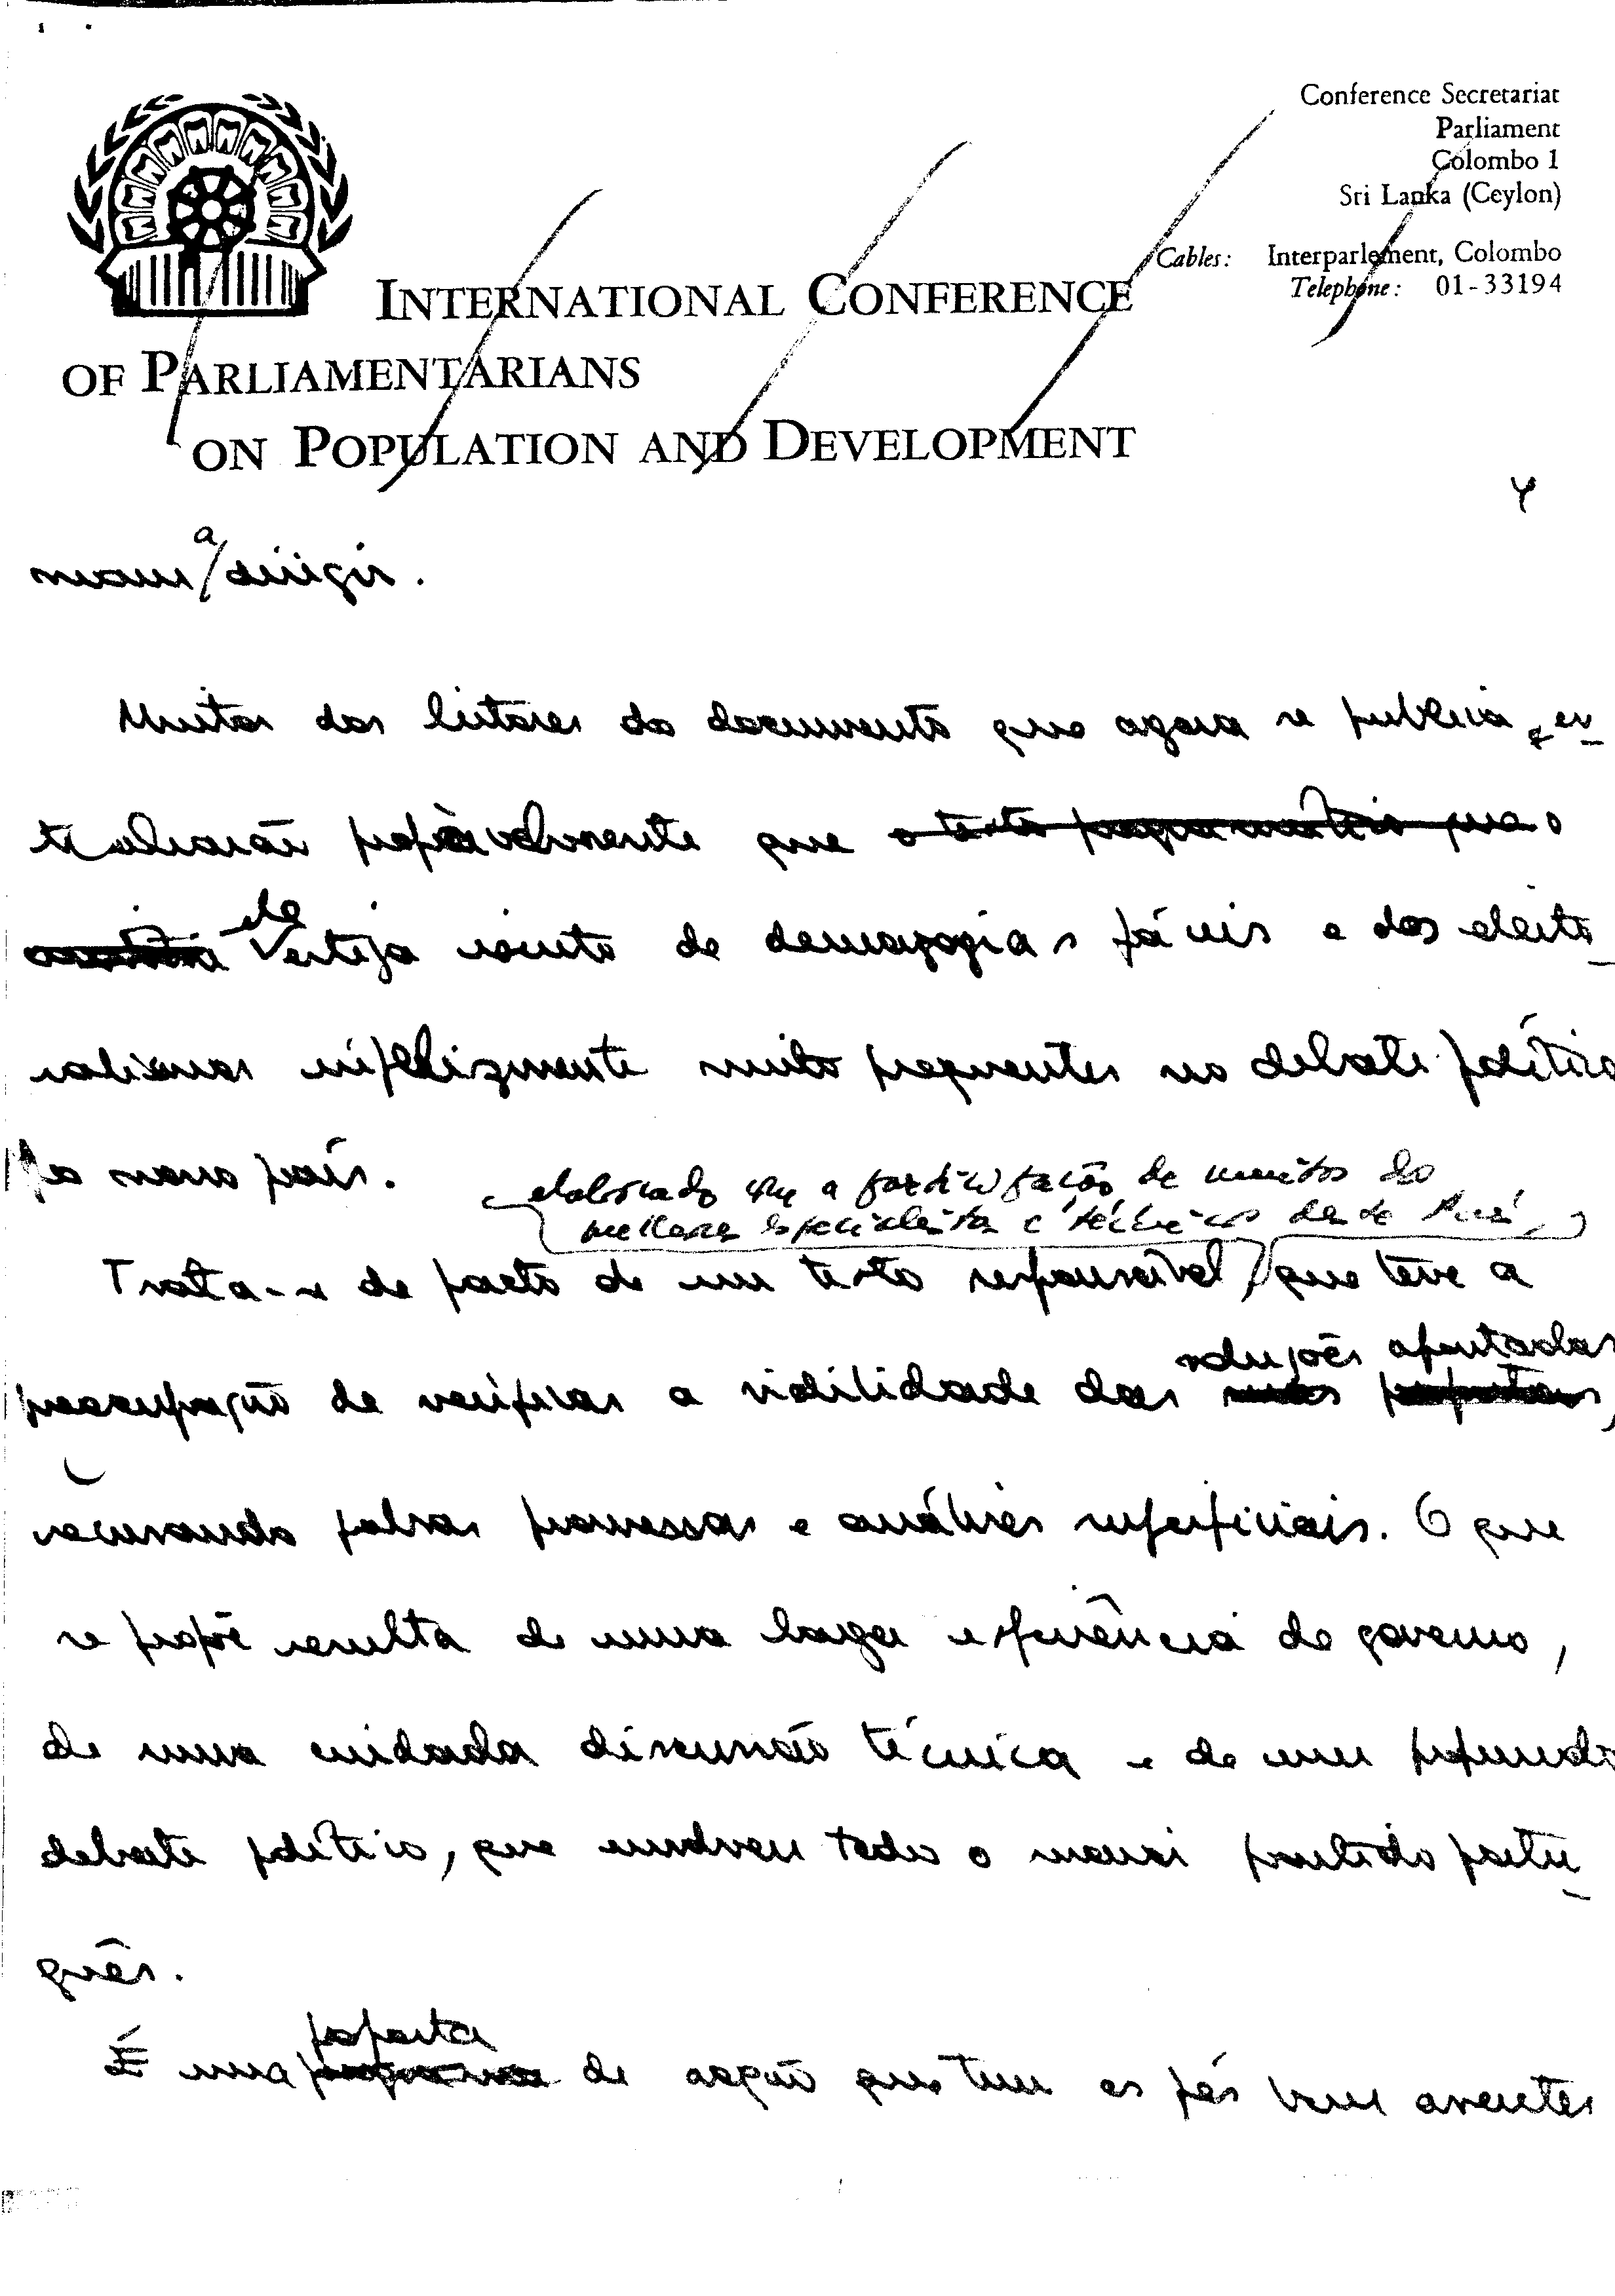 Conference Secretariat
Parliament
Colombo 1
Sri Lanka (Ceylon)
Cables: Interparlement, Colombo
Telephone: 01-33194
INTERNATIONAL CONFERENCE
OF PARLIAMENTARIANS
ON POPULATION AND DEVELOPMENT
4
a
dirigir.
Muitos dos leitores do documento que agora se publica, es
tranharão provavelmente que o texto programático que o
ele
esteja isento de demagogias fáceis e dos eleito
ralismos infelizmente muito frequentes no debate político
do nosso país.
elaborado com a participação de muitos dos
melhores especialistas e técnicos deste País,
Trata-se de facto de um texto responsável, que teve a
soluções apontadas
preocupação de verificar a viabilidade das suas propostas,
recusando falsas promessas e análises superficiais. O que
se propõe resulta de uma larga experiência de governo,
de uma cuidada discussão técnica e de um profundo
debate político, que envolveu todo o maior partido portu
guês.
proposta
É uma programa de acção que tem os pés bem assentes